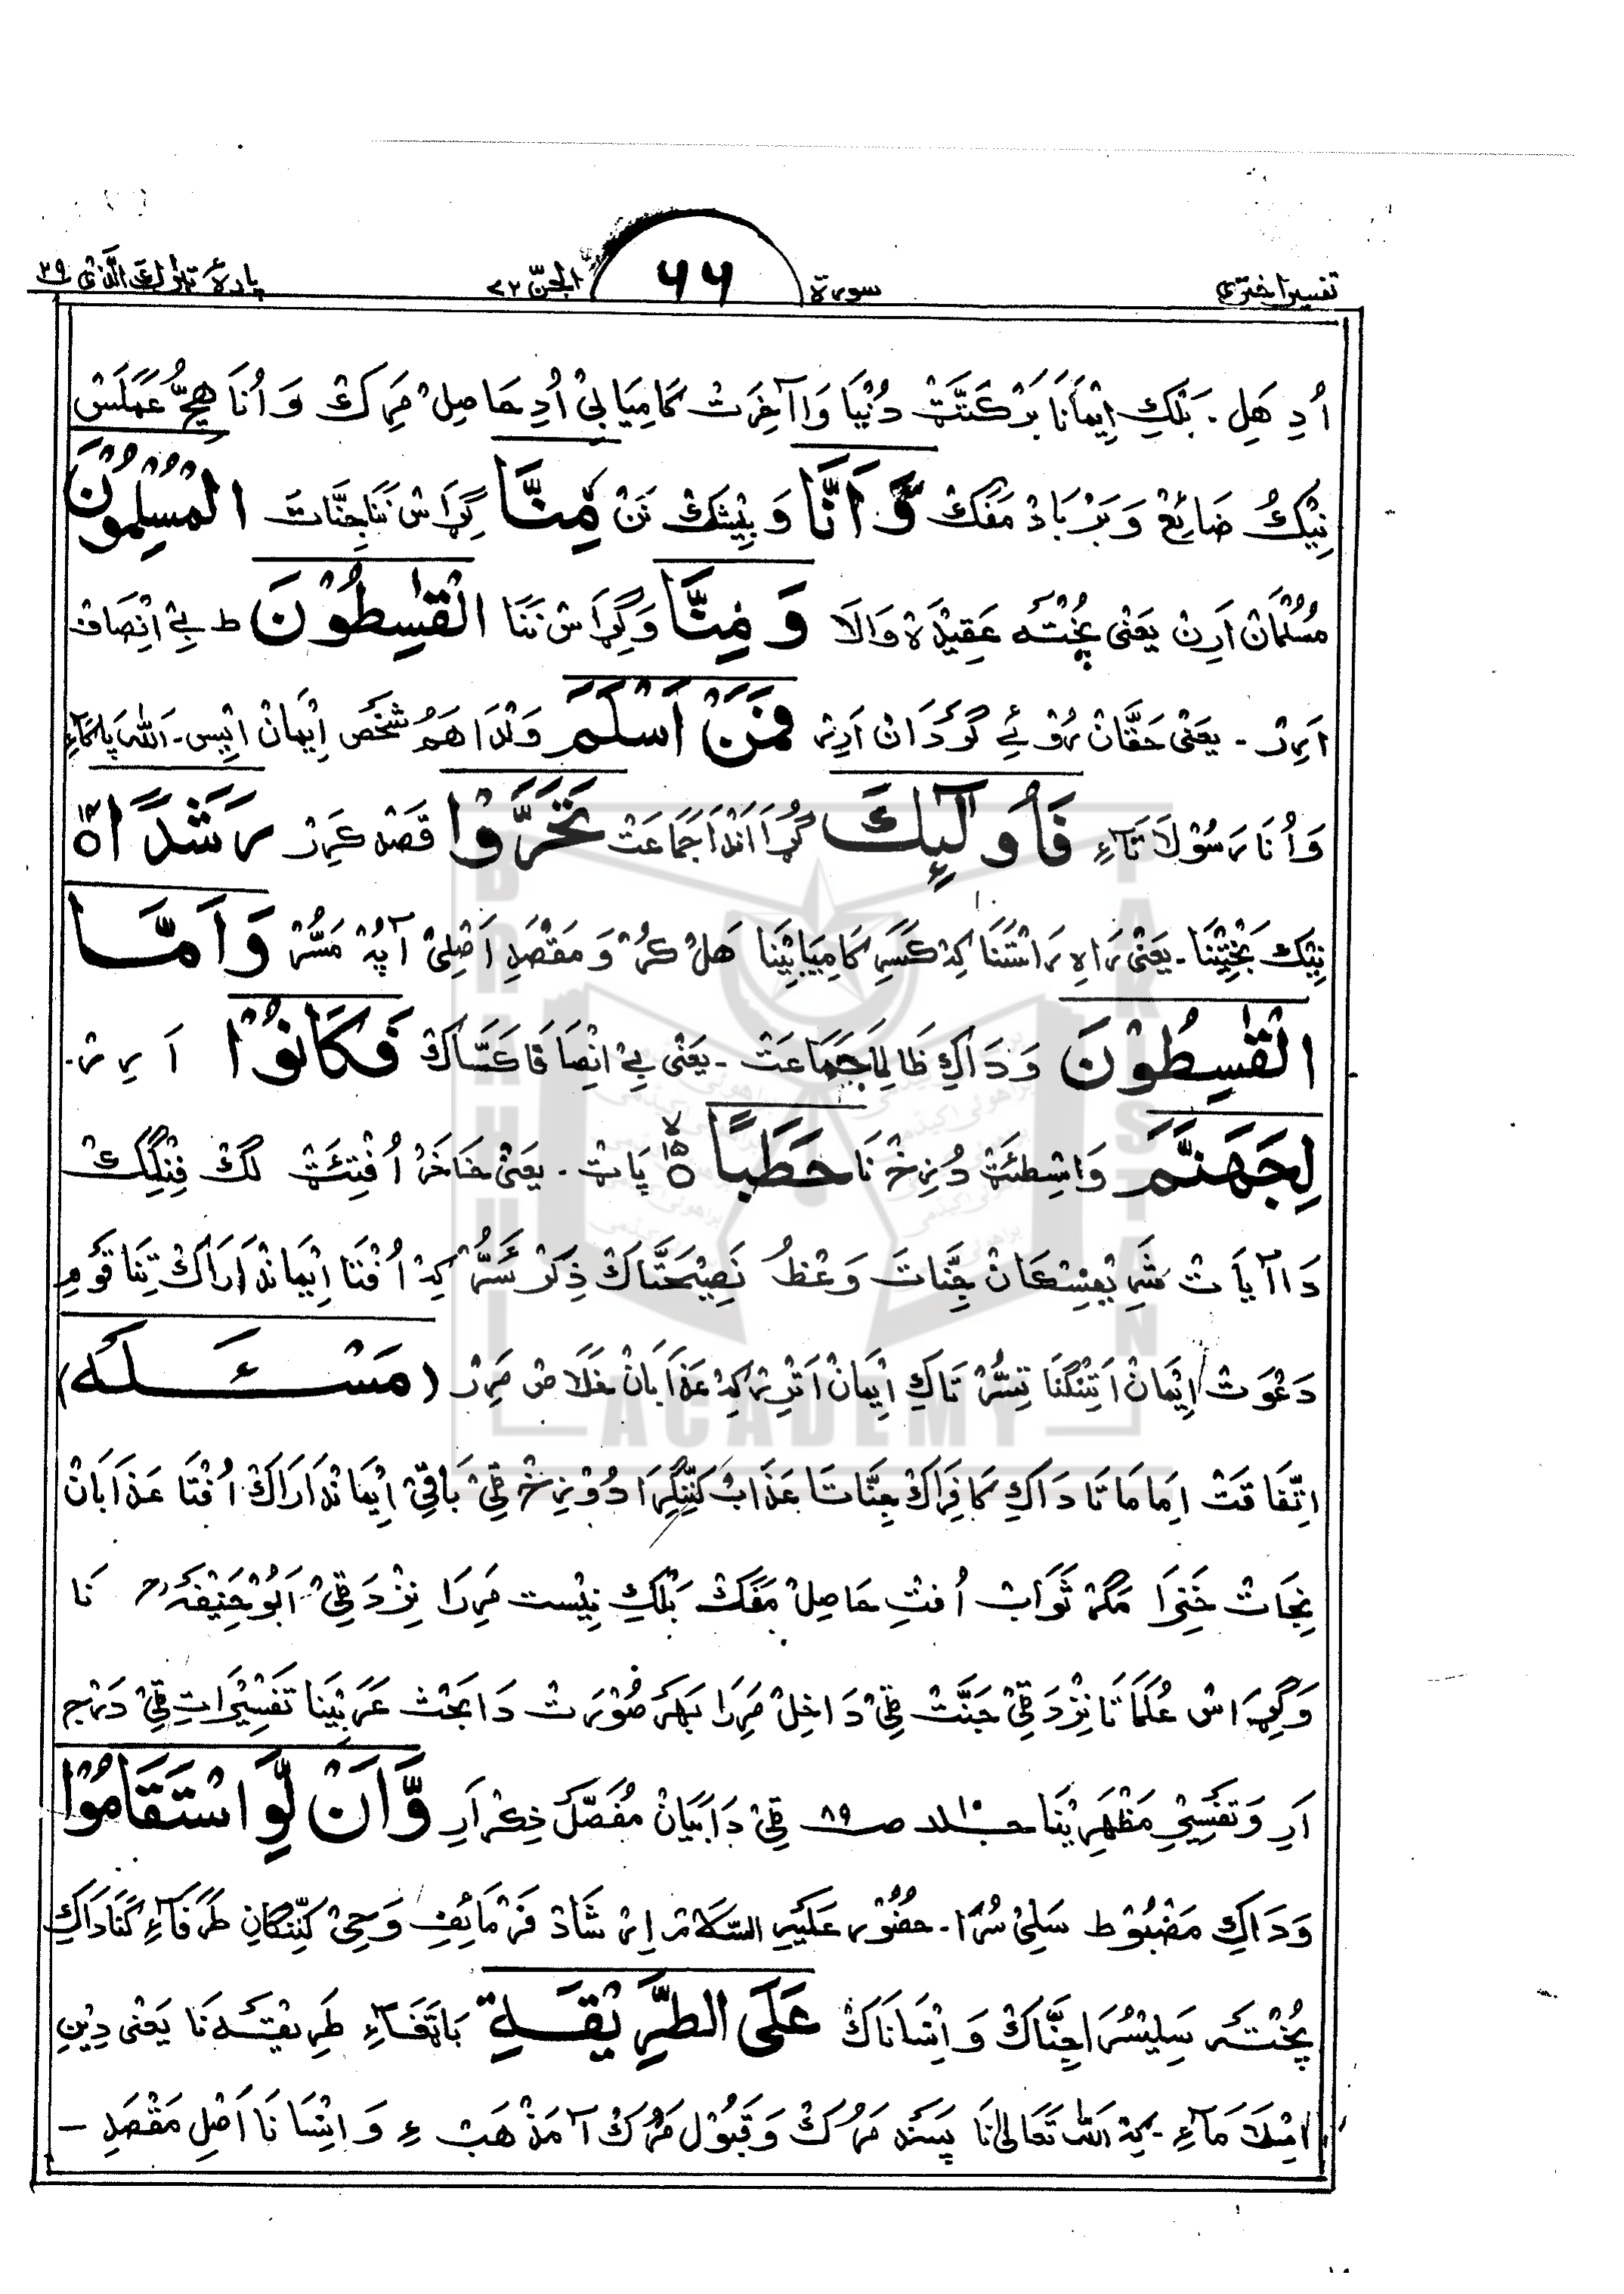 تفسیر اختری سورة ۶۶ الجنّ ۷۲ پارۀ تبٰرك الّذی ۲۹
اُدِ هَلِ۔ بَلکِ اِیْمَانَا بَرْكَتَّتْ دُنْیَا وَ اٰخِرَتْ كَامِیَابِیْ اُدِ حَاصِلْ مَرِكْ وَ اُنَا هِیچُّ عَمَلَسْ
نِیْكُ ضَائِعْ وَ بَرْبَادْ مَفَكْ وَّ اَنَّا وَ بِیْشَكْ نَنْ مِنَّا كِرَاسْ نَنَا جِنَّاتَ الْمُسْلِمُوْنَ
مُسُلْمَانْ اَرِنْ یَعْنٰی پُخْتَہ عَقِیْدَہ وَالَا وَ مِنَّا وَ كِرَاسْ نَنَا الْقٰسِطُوْنَ ط بِےْ اِنْصَافْ
اَرِرْ۔ یَعْنٰی حَقَّانْ رُوْئےِ گَرْدَانْ اَرِرْ فَمَنْ اَسْلَمَ وَلْدَا هَمُ شَخَصْ اِیْمَانْ اَیِس۔ اَللّٰہ پَاكَآءِ
وَ اُنَا رَسُوْلَا تَآءِ فَاُولٰٓئِكَ گُرَا اَنْدَا جَمَاعَتْ تَحَرَّوْا قَصْد كَرِرْ رَشَدًا ۱۴
نِیْكَ بَخْتِیْنَا۔ یَعْنٰی رَاہِ رَاسْتَنَا كِہْ كَسَرِ كَامِیَابِیْنَا هَلْ كُرْ وَ مَقْصَدِ اَصْلِیْ اٰپُہْ مَسُّرْ وَ اَمَّا
الْقٰسِطُوْنَ وَ دَاكِ ظَالِمَا جَمَاعَتْ۔ یَعْنٰی بےْ اِنْصَافَا كَسَّاكْ فَكَانُوْا اَرِرْ۔
لِجَهَنَّمَ وَاسْطَئَتْ دُزِخْ نَا حَطَبًا ۱۵ پَاتْ۔ یَعْنٰی خَاخَرْ اُفْتِئَتْ لَگْ فِنْگِكْ
دَا اٰیَاتْ مَنِّی جِنَّاتَ وَعْظُ نَصِیْحَتَّاكْ ذِكْرْ مَسُّرْ كِہْ اُفْتَا اِیْمَانْدَارَاكْ تِنَا قَوْمِ
دَعْوَتْ اِیْمَانْ اَتِنْگَنَا تِسُّرْ تَاكِ اِیْمَانْ اَتِرْ كِہْ عَذَابَانْ خَلَاصْ مَرِرْ (مَسْئَلَه)
اِتِّفَاقَتْ اِمَامَاتَا دَاكِ كَافِرَاكْ جِنَّاتَا عَذَابْ كَنِّنْگِرَا دُوْزِخْ ٹِیْ بَاقِیْ اِیْمَانْدَارَاكْ اُفْتَا عَذَابَانْ
نِجَاتْ خَنِرَا مَگَرْ ثَوَابْ اُفْتِ حَاصِلْ مَفَكْ بَلْكِ نِیْست مَرِرَا نِزْدَ ٹِیْ اَبُوْحَنِیْفَہ رح نَا
وَ كِرَاسْ عُلَمَاتَا نِزْدَ ٹِیْ جَنَّتْ ٹِیْ دَاخِلْ مَرِرَا بَهَرْ صُوْرَتْ دَا بَحْثْ عَرَبِیْنَا تَفْسِیْرَاتِ ٹِیْ دَرْج
اَرِ وَ تَفْسِیْرِ مَظْهَرِیْنَا جلد ۱۰ ص ۸۹ ٹِیْ دَا بَیَانْ مُفَصَّلْ ذِكْر اَرِ وَّ اَنْ لَّوِ اسْتَقَامُوْا
وَ دَاكِ مَضْبُوْط سَلِیْسُرَا۔ حضُوْر عَلَیْہِ السّلَامْ اِرْشَادْ فَرْمَائِفِ وَحِیْ كَنِّنْگَانِ طَرَفَآءِ كَنَا دَاكِ
پُخْتَہ سَلِیْسُرَا جِنَّاكْ وَ اِنْسَانَاكْ عَلَی الطَّرِیْقَةِ بَاتَغَآءِ طَرِیقَہ نَا یَعْنٰی دِیْنِ
اِسْلَامَآءِ۔ كِہْ اللّٰہ تَعَالٰی نَا پَسَنْد مَرُكْ وَ قَبُوْل مَرُكْ اٰ مَذْهَبْ ءِ وَ اِنْسَانَا اَصْلِ مَقْصَدِ –
BRAHUI ACADEMY PAKISTAN